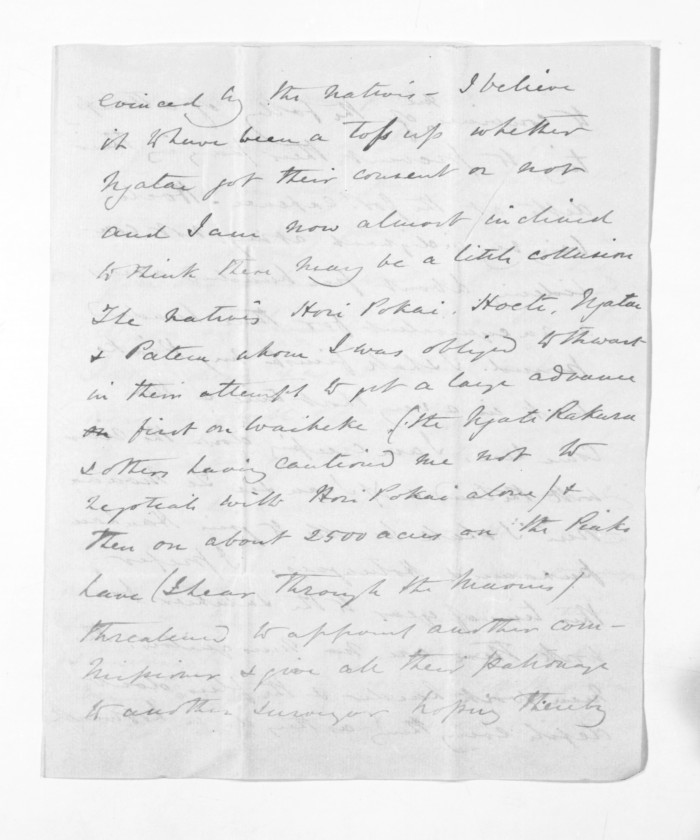 evinced by the natives - I believe
it to have been a toss up whether
Ngatae got their consent or not
and I am now almost inclined
to think there may be a little collusion
The natives Hori Pokai, Hoete, Ngatae
& Patena whom I was obliged to thwart
in their attempt to get a large advance
first on Waiheke (the Ngati Rakura
& others having cautioned me not to
negotiate with Hori Pokai alone) &
then on about 2500 acres on the Piako
have (I hear through the Maoris)
threatened to appoint another com-
missioner & give all their patronage
to another surveyor hoping thereby